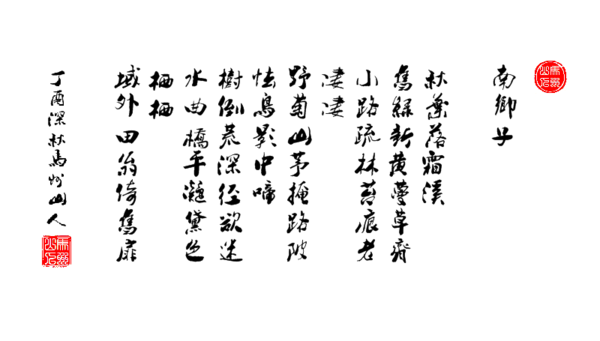 南鄉子
秋葉落霜溪
舊綠新黃蔓草齊
小路疏林苔痕老
淒淒
野菊山茅掩路陂
怯鳥影中啼
樹倒荒深徑欲迷
水曲橋平凝黛色
栖栖
域外田翁倚舊扉
丁酉深秋馬州山人